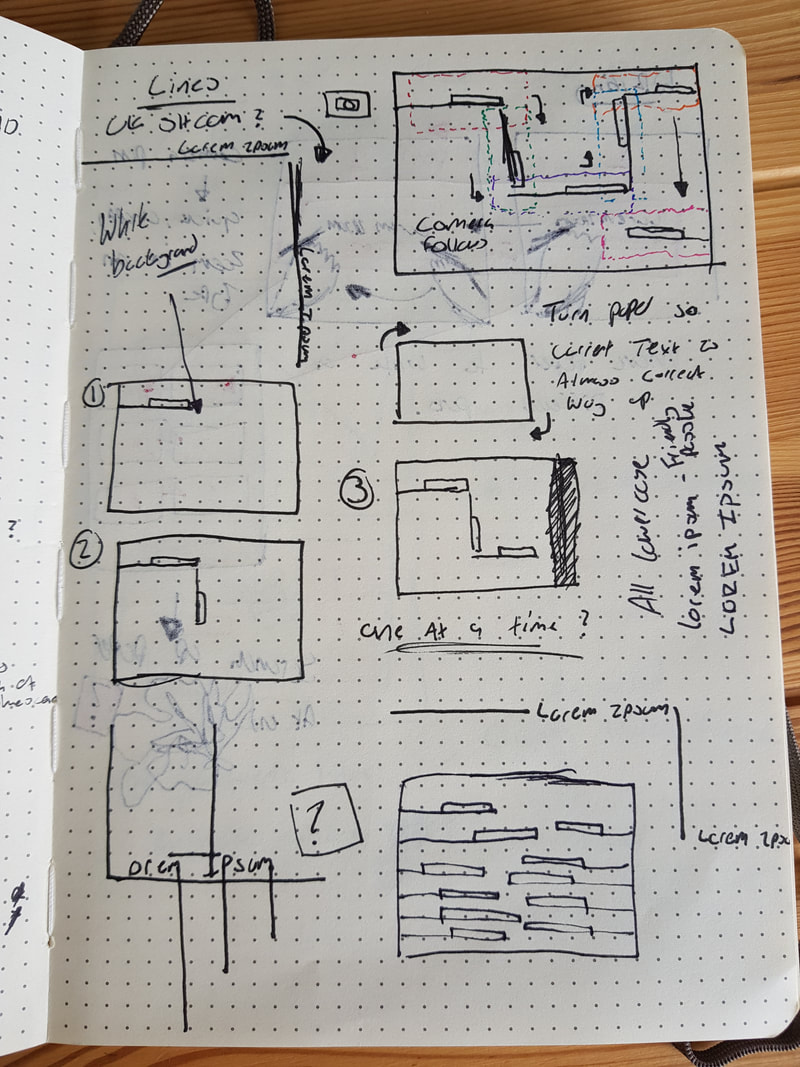 Lines
UK Sitcom?
Lorem Ipsum
White
background
Lorem Ipsum
Camera
Follows
Turn paper so
current Text is
Almost correct
Way up.
1
2
3
All lowercase
lorem ipsum - Friendly
LOREM IPSUM
one At a time?
Lorem Ipsum
Lorem Ipsu
?
orem Ipsum